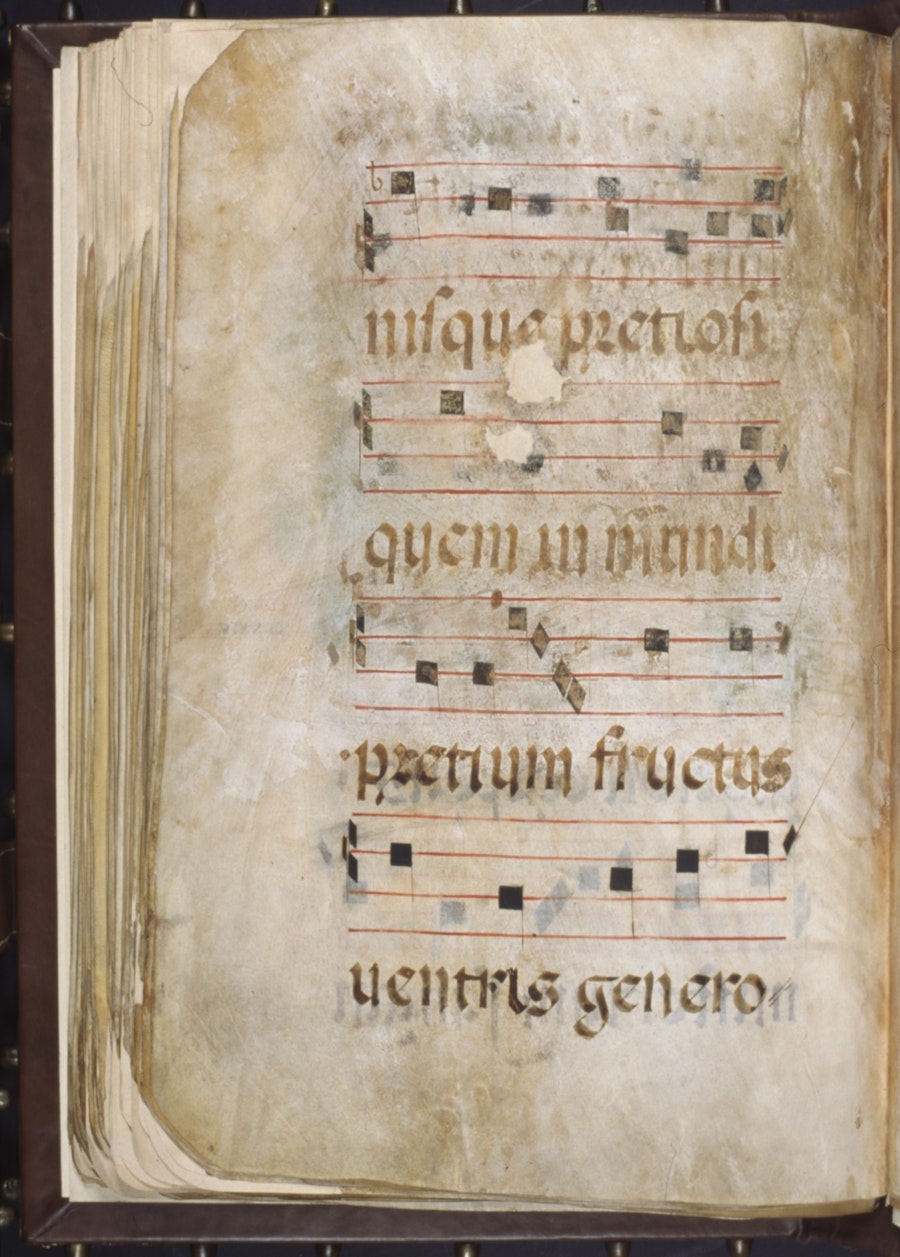 nisque pretiosi
quem in mundi
pretium fructus
uentris genero